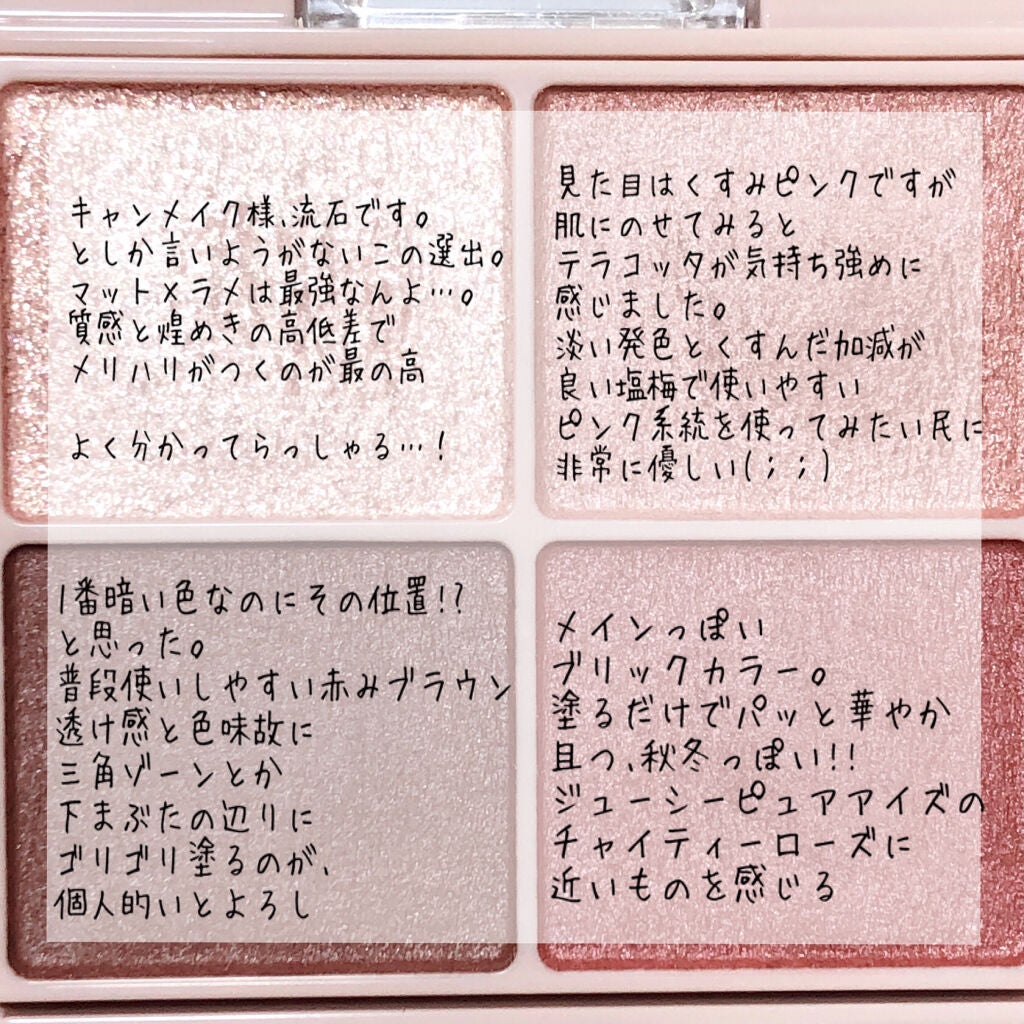 キャンメイク様、流石です。
としか言いようがないこの選出。
マット×ラメは最強なんよ…。
質感と煌めきの高低差で
メリハリがつくのが最の高
よく分かってらっしゃる…!
見た目はくすみピンクですが
肌にのせてみると
テラコッタが気持ち強めに
感じました。
淡い発色とくすんだ加減が
良い塩梅で使いやすい
ピンク系統を使ってみたい民に
非常に優しい(;;)
1番暗い色なのにその位置!?
と思った。
普段使いしやすい赤みブラウン
透け感と色味故に
三角ゾーンとか
下まぶたの辺りに
ゴリゴリ塗るのが、
個人的いとよろし
メインっぽい
ブリックカラー。
塗るだけでパッと華やか
且つ、秋冬っぽい!!
ジューシーピュアアイズの
チャイティーローズに
近いものを感じる